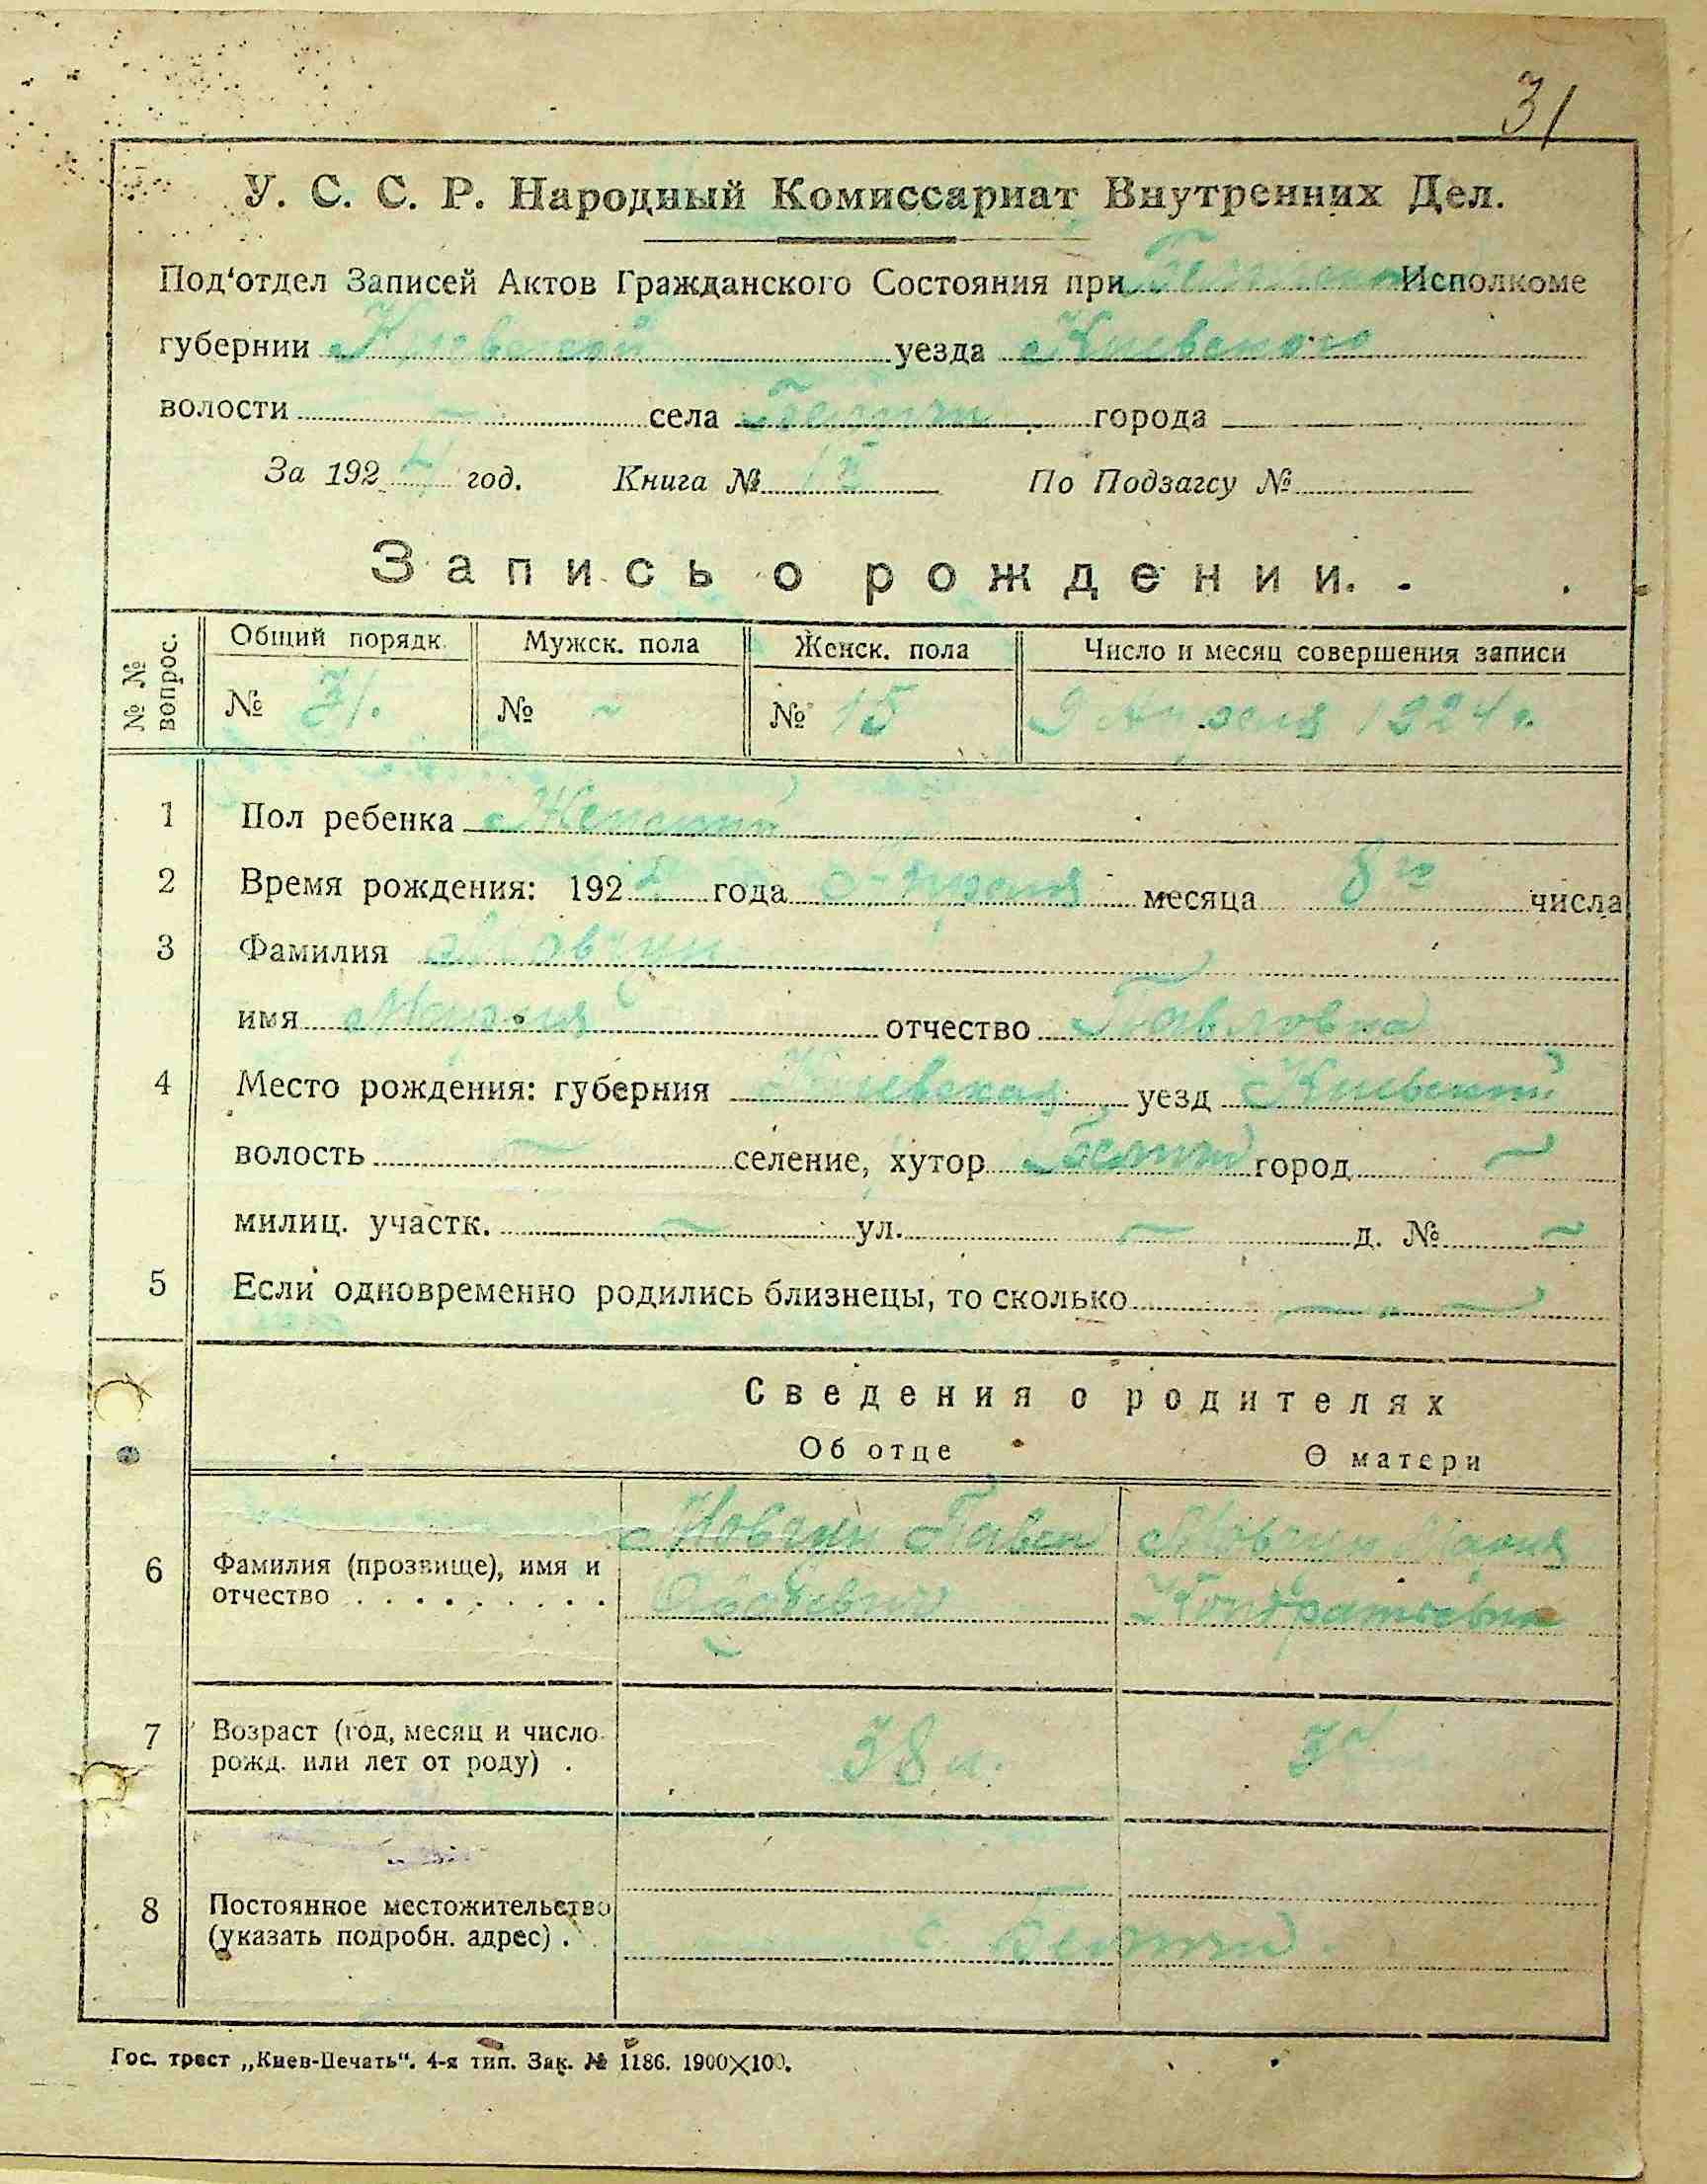 31
У. С. С. Р. Народный Комиссариат Внутренних Дел.
Под'отдел Записей Актов Гражданского Состояния при Исполкоме
губернии Киевской уезда Киевского
волости ~ села Беличи города
За 1924 год. Книга № По Подзагсу №
Запись о рождении.
№ № вопрос. Общий порядк. Мужск. пола Женск. пола Число и месяц совершения записи
№ 31. № ~ № 15 9 Апреля 1924 г.
1 Пол ребенка Женский
2 Время рождения: 192 года Апреля месяца 8го числа
3 Фамилия Мовчун
имя Мария отчество Павловна
4 Место рождения: губерния Киевская уезд Киевский
волость ~ селение, хутор Беличи город ~
милиц. участк. ~ ул. ~ д. № ~
5 Если одновременно родились близнецы, то сколько
Сведения о родителях
Об отце О матери
6 Фамилия (прозвище), имя и отчество Мовчун Павел Мовчун Мария
Кондратьевна
7 Возраст (год, месяц и число рожд. или лет от роду) . 38 л.
8 Постоянное местожительство (указать подробн. адрес) . с. Беличи.
Гос. трест „Киев-Печать". 4-я тип. Зак. № 1186. 1900×100.